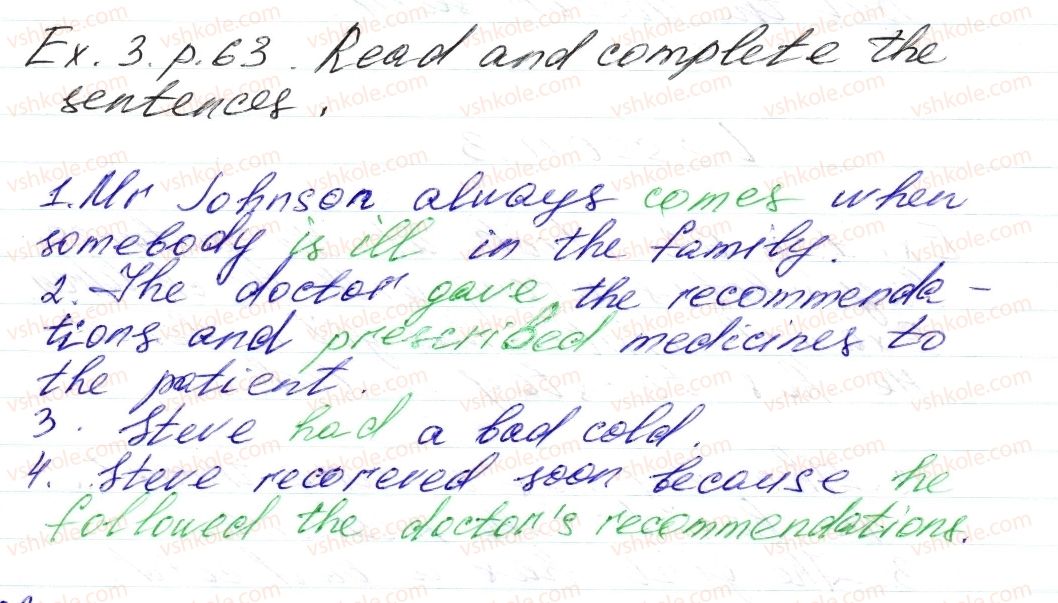 Ex. 3. p. 63. Read and complete the
sentences.
1. Mr Johnson always comes when
somebody is ill in the family.
2. The doctor gave the recommenda-
tions and prescribed medicines to
the patient.
3. Steve had a bad cold.
4. Steve recovered soon because he
followed the doctor's recommendations.
vshkole.com